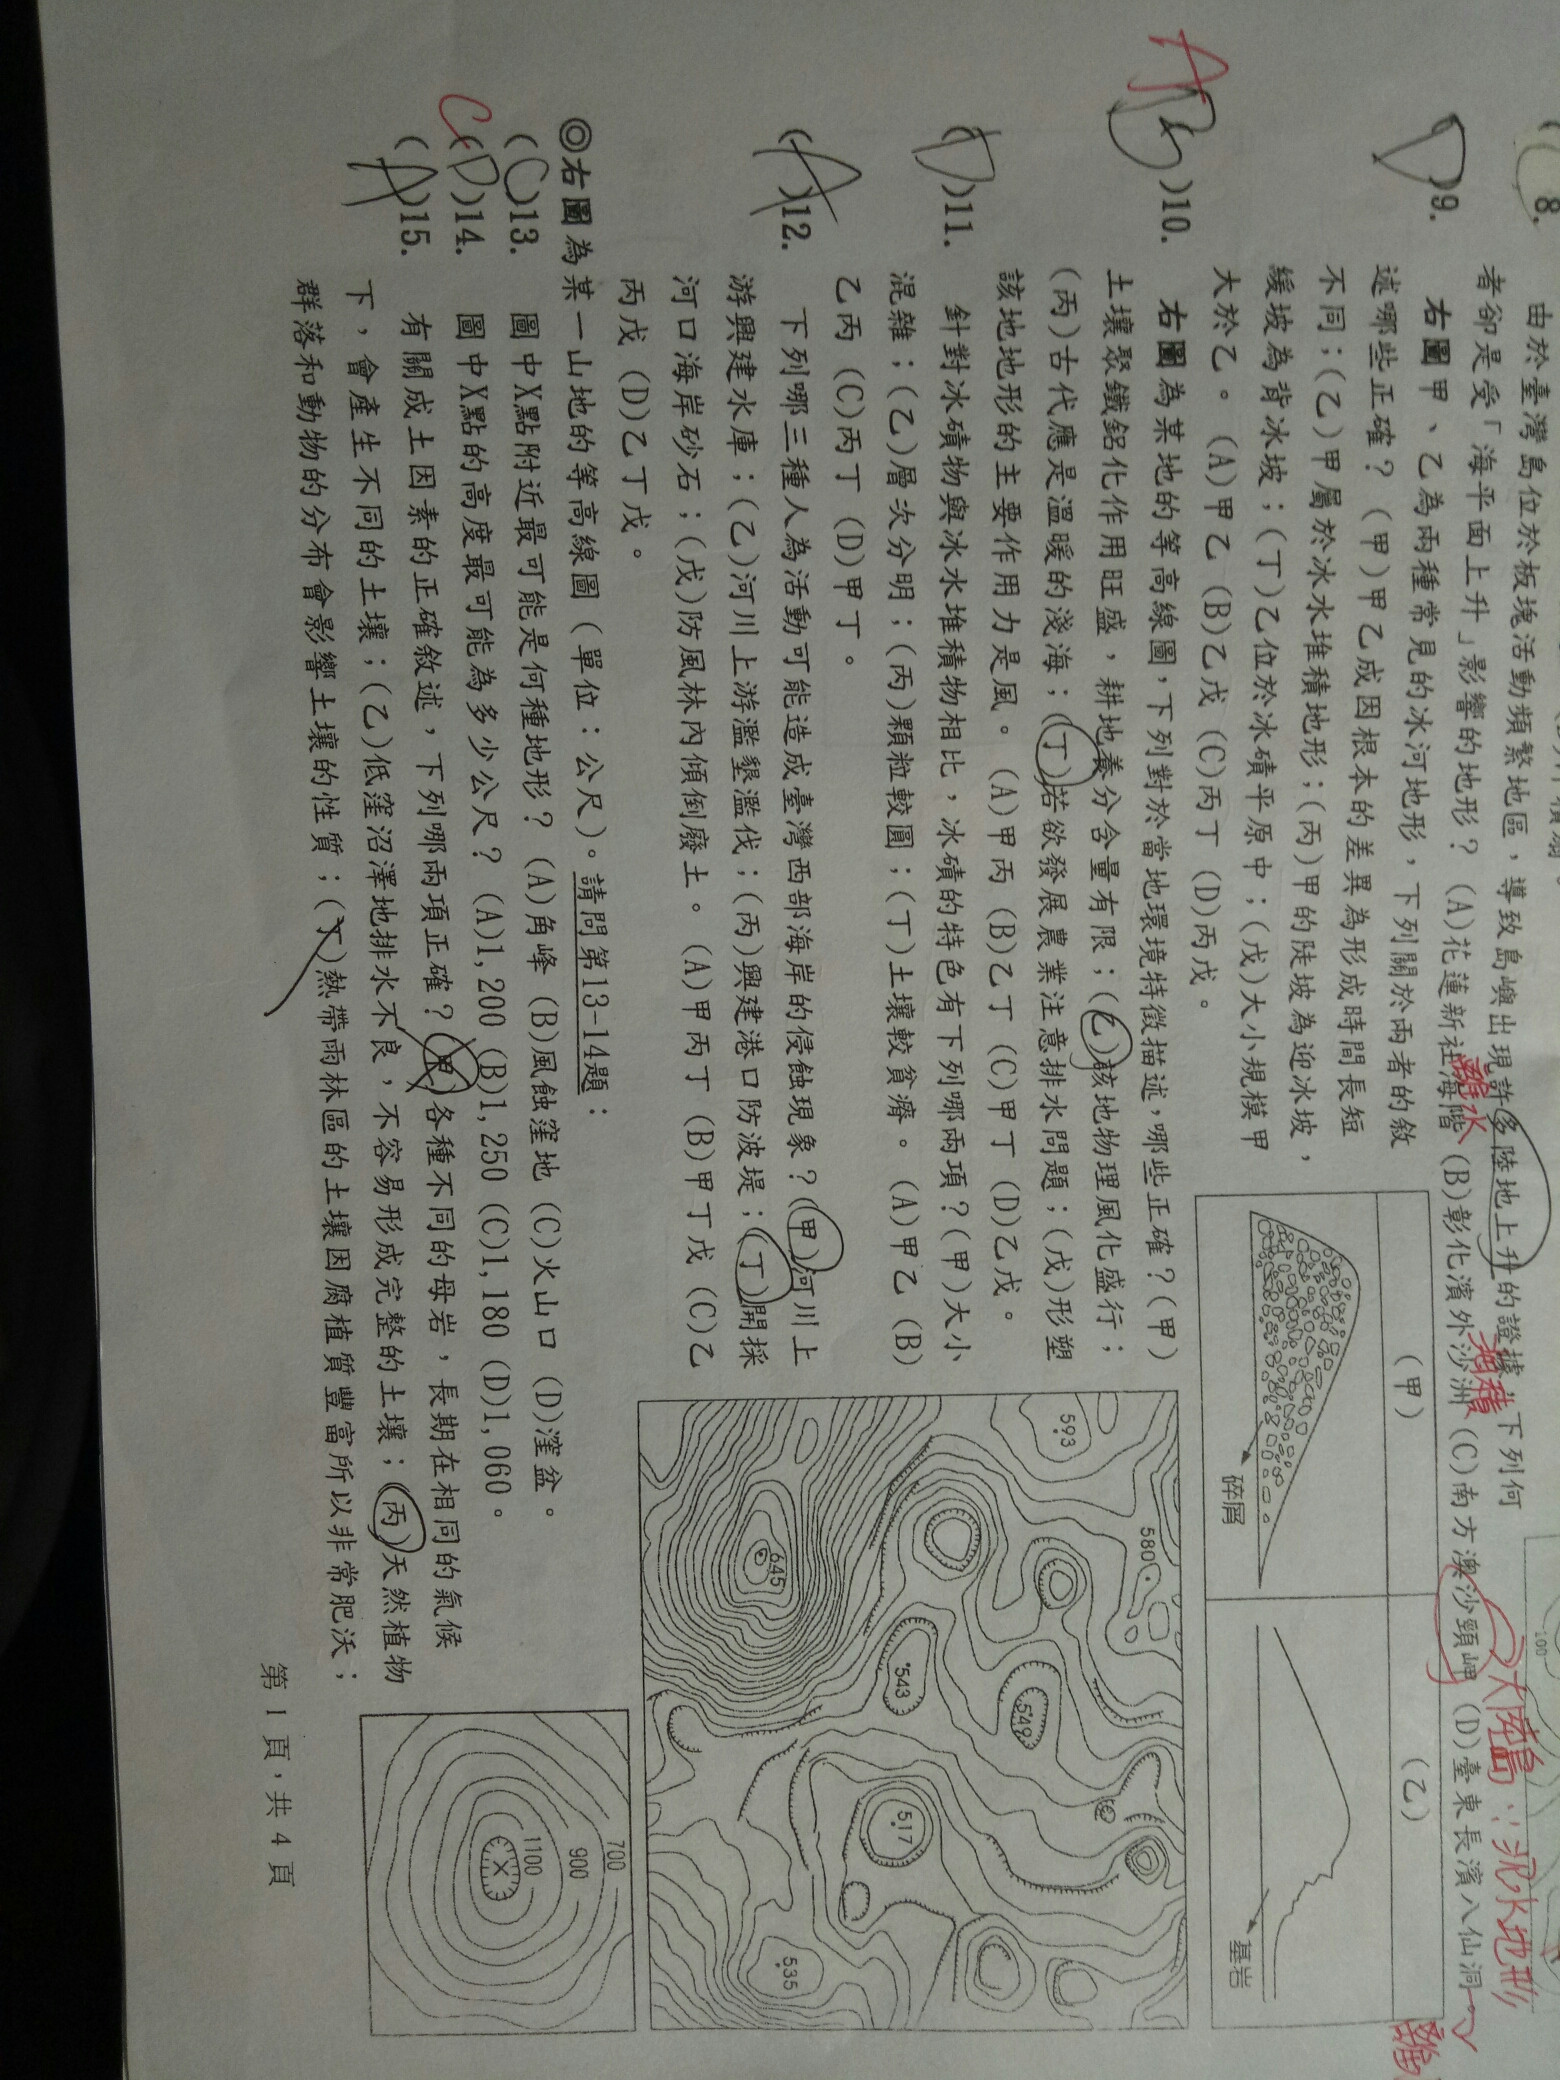 8. 由於臺灣島位於板塊活動頻繁地區，導致島嶼出現許多陸地上升的證據，下列何
者卻是受「海平面上升」影響的地形？ (A)花蓮新社海階 (B)彰化濱外沙洲 (C)南方澳沙頸岬 (D)臺東長濱八仙洞
離水
堆積
大陸島：沉水地形
(D)9. 右圖甲、乙為兩種常見的冰河地形，下列關於兩者的敘
述哪些正確？ (甲)甲乙成因根本的差異為形成時間長短
不同；(乙)甲屬於冰水堆積地形；(丙)甲的陡坡為迎冰坡，
緩坡為背冰坡；(丁)乙位於冰磧平原中；(戊)大小規模甲
大於乙。 (A)甲乙 (B)乙戊 (C)丙丁 (D)丙戊。
(甲)
(乙)
碎屑
基岩
A
(B)10. 右圖為某地的等高線圖，下列對於當地環境特徵描述，哪些正確？(甲)
土壤聚鐵鋁化作用旺盛，耕地養分含量有限；(乙)該地物理風化盛行；
(丙)古代應是溫暖的淺海；(丁)若欲發展農業注意排水問題；(戊)形塑
該地地形的主要作用力是風。 (A)甲丙 (B)乙丁 (C)甲丁 (D)乙戊。
(D)11. 針對冰磧物與冰水堆積物相比，冰磧的特色有下列哪兩項？(甲)大小
混雜；(乙)層次分明；(丙)顆粒較圓；(丁)土壤較貧瘠。 (A)甲乙 (B)
乙丙 (C)丙丁 (D)甲丁。
(A)12. 下列哪三種人為活動可能造成臺灣西部海岸的侵蝕現象？(甲)河川上
游興建水庫；(乙)河川上游濫墾濫伐；(丙)興建港口防波堤；(丁)開採
河口海岸砂石；(戊)防風林內傾倒廢土。 (A)甲丙丁 (B)甲丁戊 (C)乙
丙戊 (D)乙丁戊。
593
580
645
543
549
517
535
◎右圖為某一山地的等高線圖（單位：公尺）。請問第13-14題：
(C)13. 圖中X點附近最可能是何種地形？ (A)角峰 (B)風蝕窪地 (C)火山口 (D)窪盆。
C
(D)14. 圖中X點的高度最可能為多少公尺？ (A)1,200 (B)1,250 (C)1,180 (D)1,060。
(A)15. 有關成土因素的正確敘述，下列哪兩項正確？(甲)各種不同的母岩，長期在相同的氣候
下，會產生不同的土壤；(乙)低窪沼澤地排水不良，不容易形成完整的土壤；(丙)天然植物
群落和動物的分布會影響土壤的性質；(丁)熱帶雨林區的土壤因腐植質豐富所以非常肥沃；
700
900
1100
X
第 1 頁，共 4 頁